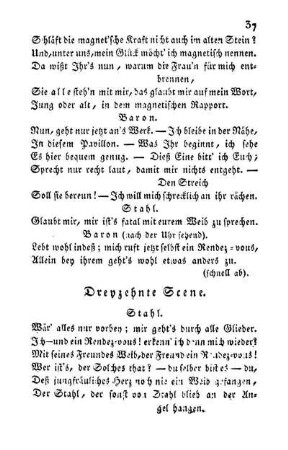 37
Schläft die magnet'sche Kraft nicht auch im alten Stein?
Und, unter uns, mein Glück möcht' ich magnetisch nennen.
Da wißt Ihr's nun, warum die Frau'n für mich ent-
brennen,
Sie alle steh'n mit mir, das glaubt mir auf mein Wort,
Jung oder alt, in dem magnetischen Rapport.
Baron.
Nun, geht nur jetzt an's Werk. — Ich bleibe in der Nähe,
In diesem Pavillon. — Was Ihr beginnt, ich sehe
Es hier bequem genug. — Dieß Eine bitt' ich Euch;
Sprecht nur recht laut, damit mir nichts entgeht. —
Den Streich
Soll sie bereun! — Ich will mich schrecklich an ihr rächen.
Stahl.
Glaubt mir, mir ist's fatal mit eurem Weib zu sprechen.
Baron (nach der Uhr sehend).
Lebt wohl indeß; mich ruft jetzt selbst ein Rendez-vous,
Allein bey ihrem geht's wohl etwas anders zu.
(schnell ab).
Dreyzehnte Scene.
Stahl.
Wär' alles nur vorbey; mir geht's durch alle Glieder.
Ich — und ein Rendez-vous! erkenn' ich denn mich wieder?
Mit seines Freundes Weib, der Freund ein Rendez-vous!
Wer ist's, der Solches that? — du selber bist es — du,
Deß jungfräuliches Herz noch nie ein Weib gefangen,
Der Stahl, der sonst von Stahl blieb an der An-
gel hangen.